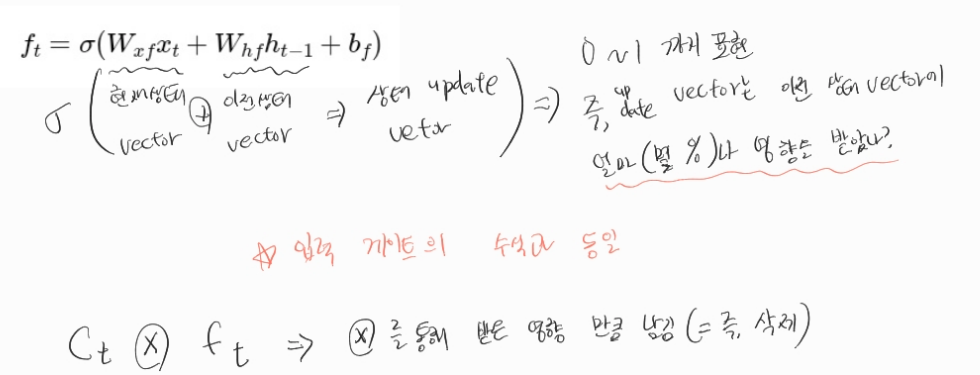 f_t = σ(W_{xf}x_t + W_{hf}h_{t-1} + b_f)
σ ( 현재상태 vector ⊕ 이전상태 vector ⇒ 상태 update vetor ) ⇒ 0~1 까지 표현
즉, update vector는 이전 상태 vector에
얼마(몇 %)나 영향을 받았나?
☆ 입력 게이트의 수식과 동일
C_t ⊗ f_t ⇒ ⊗를 통해 받은 영향 만큼 남김 (= 즉, 삭제)